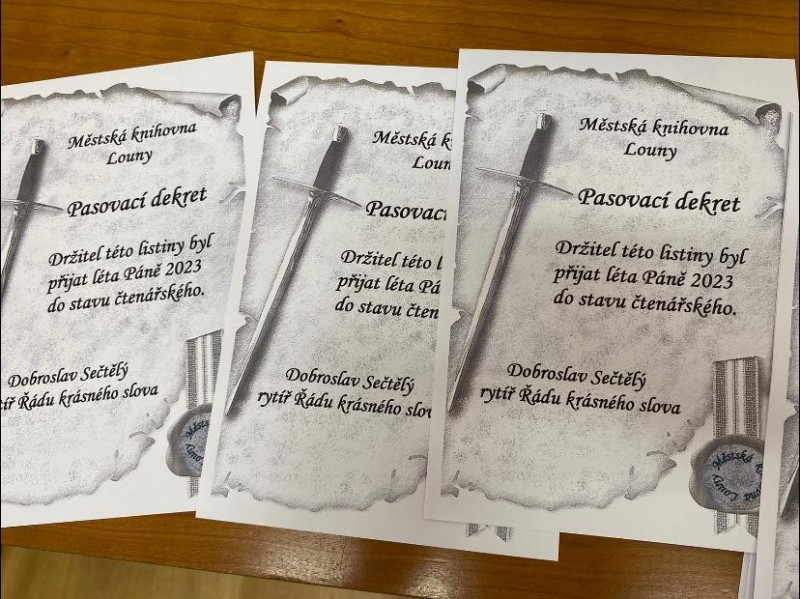 Městská knihovna
Louny
Pasovací dekret
Držitel této listiny byl
přijat léta Páně 2023
do stavu čtenářského.
Dobroslav Sečtělý
Řádu krásného slova
Městská
Louny
Městská
Pasovací
Držitel této
přijat léta
do stavu
Dobroslav Sečtělý
rytíř Řádu krásného
Městská knihovna
Louny
Pasovací dekret
Držitel této listiny byl
přijat léta Páně 2023
do stavu čtenářského.
Dobroslav Sečtělý
rytíř Řádu krásného slova
Městská
Louny